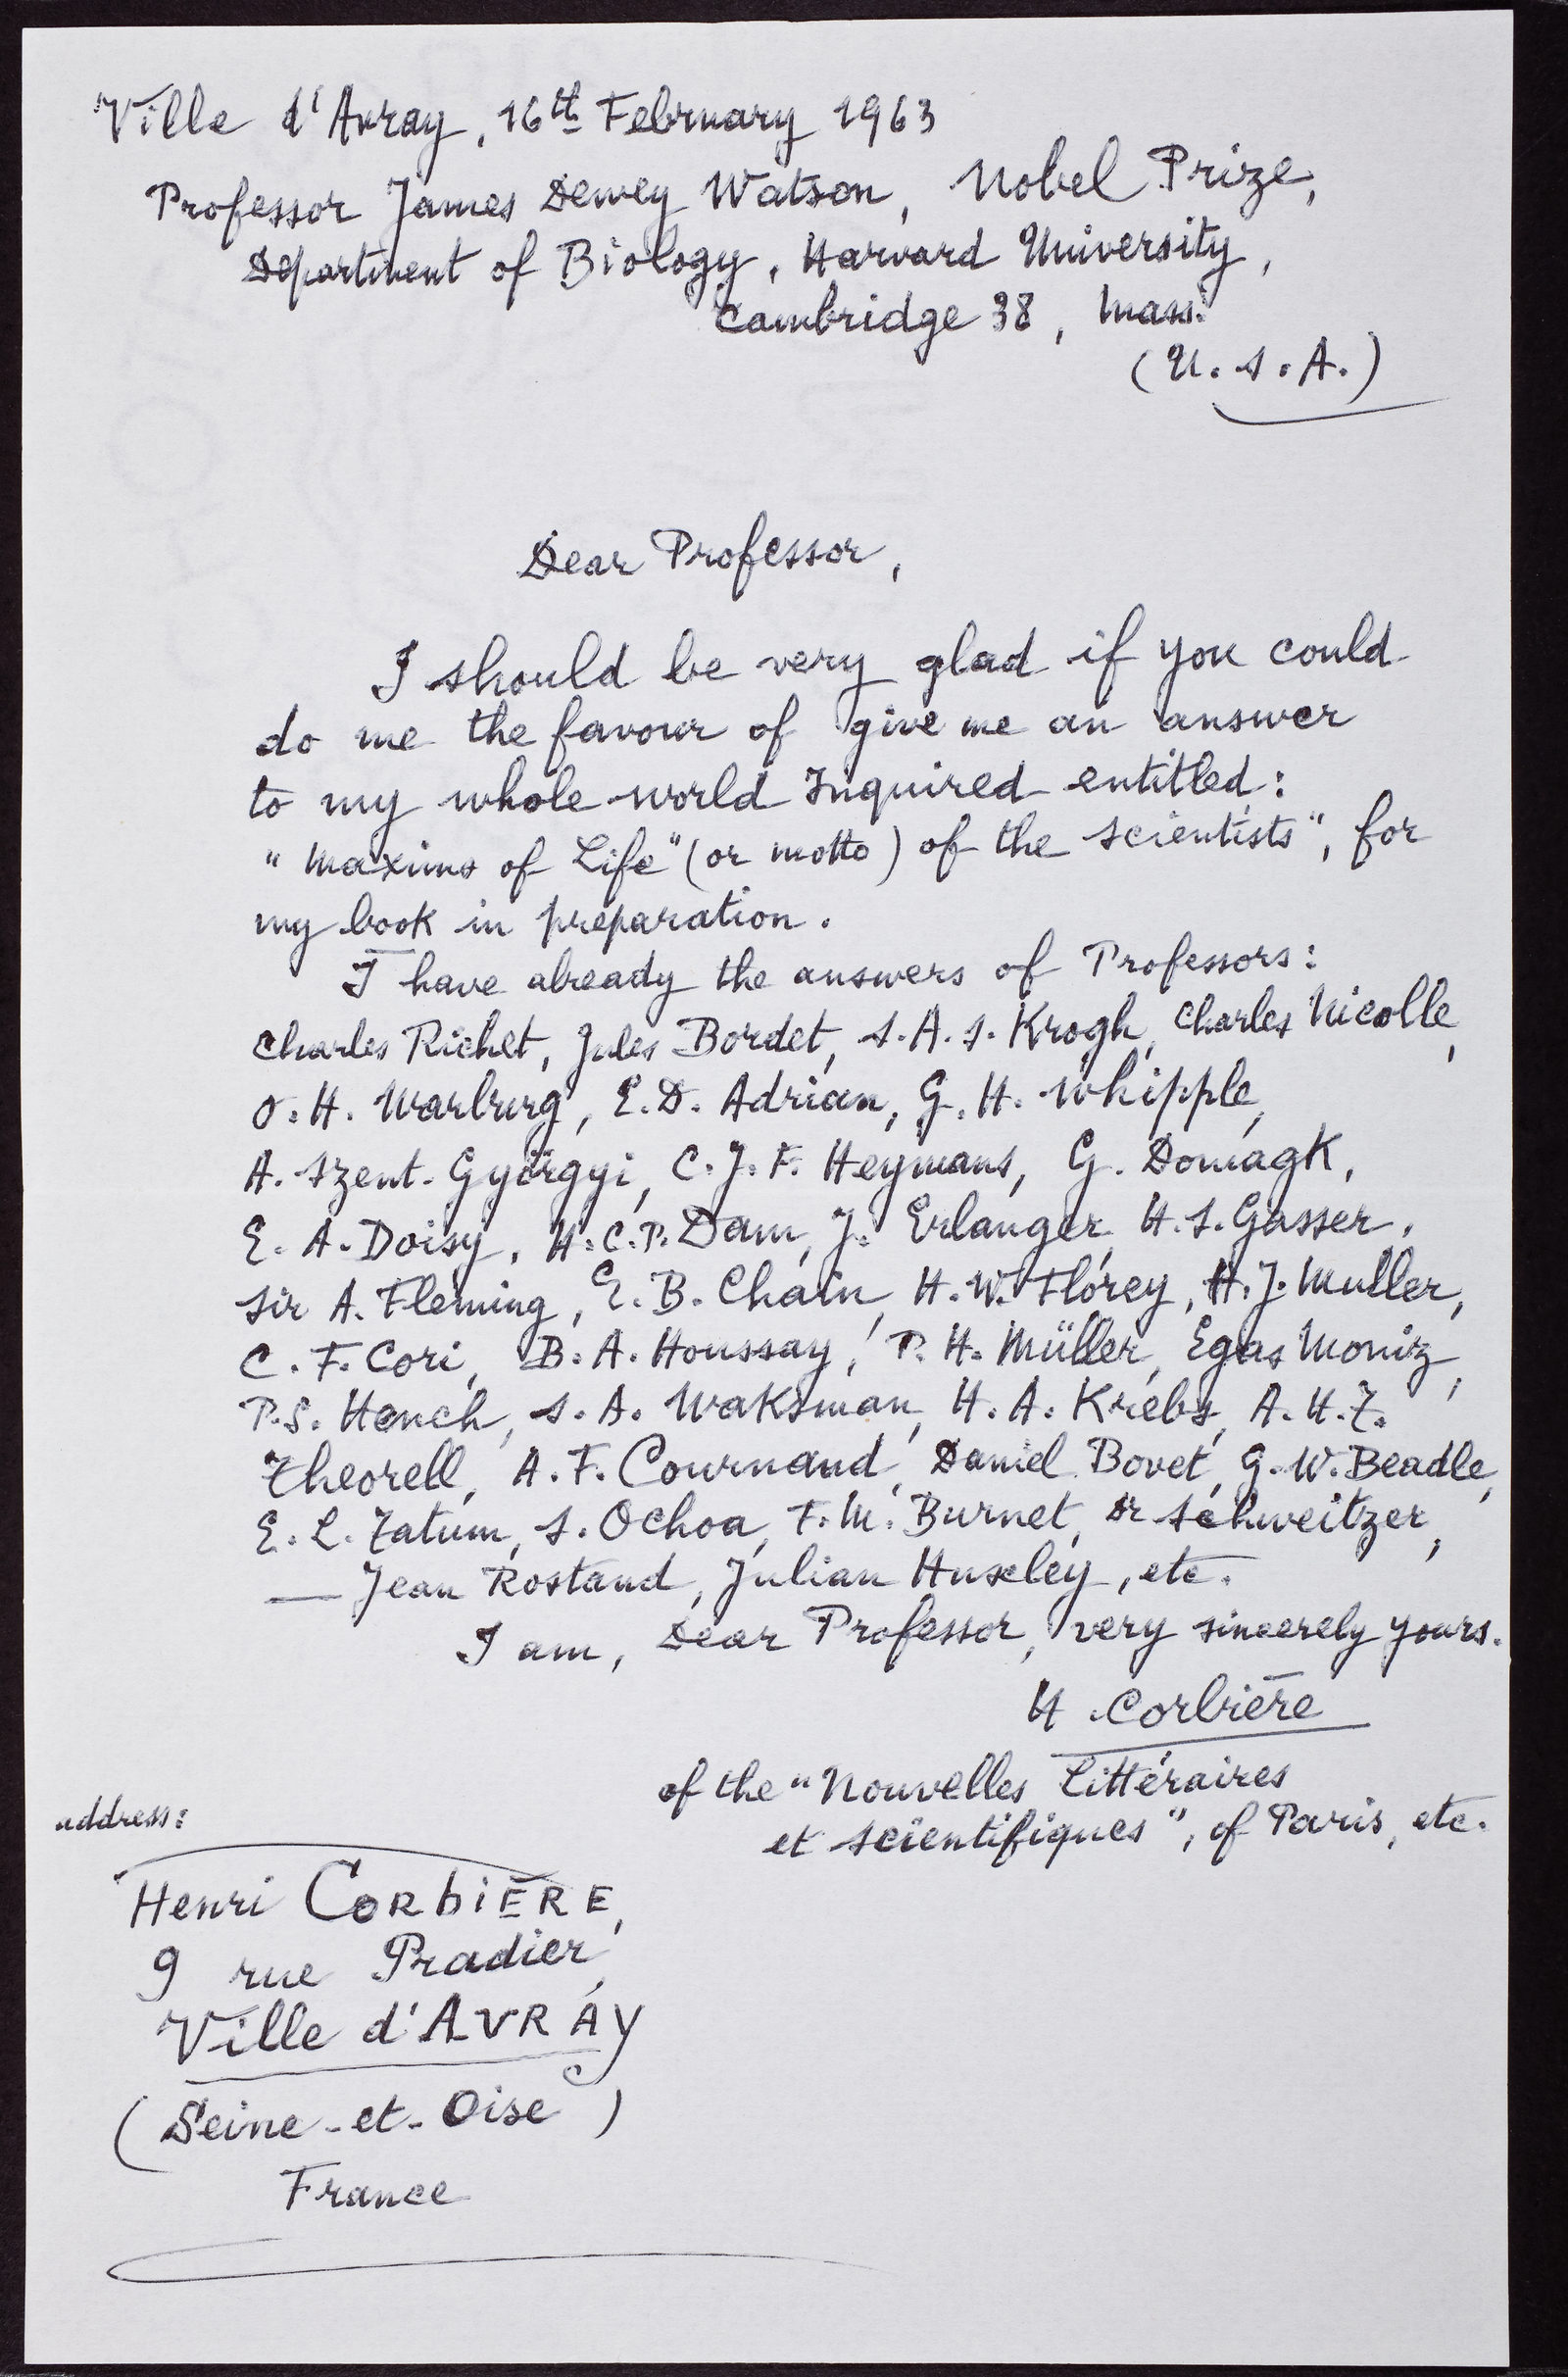 Ville d'Avray, 16th February 1963
Professor James Dewey Watson, Nobel Prize,
Department of Biology, Harvard University,
Cambridge 38, Mass.
(U.S.A.)
Dear Professor,
I should be very glad if you could
do me the favour of give me an answer
to my whole-world Inquired entitled:
"Maxims of Life" (or motto) of the scientists", for
my book in preparation.
I have already the answers of Professors:
Charles Richet, Jules Bordet, S.A.S. Krogh, Charles Nicolle,
O.H. Warburg, E.D. Adrian, G.H. Whipple,
A. Szent-Györgyi, C.J.F. Heymans, G. Domagk,
E.A. Doisy, H.C.P. Dam, J. Erlanger, H.S. Gasser,
Sir A. Fleming, E.B. Chain, H.W. Florey, H.J. Muller,
C.F. Cori, B.A. Houssay, P.H. Müller, Egas Moniz,
P.S. Hench, S.A. Waksman, H.A. Krebs, A.H.T.
Theorell, A.F. Cournand, Daniel Bovet, G.W. Beadle,
E.L. Tatum, S. Ochoa, F.M. Burnet, Dr Schweitzer,
— Jean Rostand, Julian Huxley, etc.
I am, Dear Professor, very sincerely yours.
H. Corbière
of the "Nouvelles Littéraires
et scientifiques", of Paris, etc.
address:
Henri CORBIÈRE,
9 rue Pradier,
Ville d'AVRAY
(Seine-et-Oise)
France